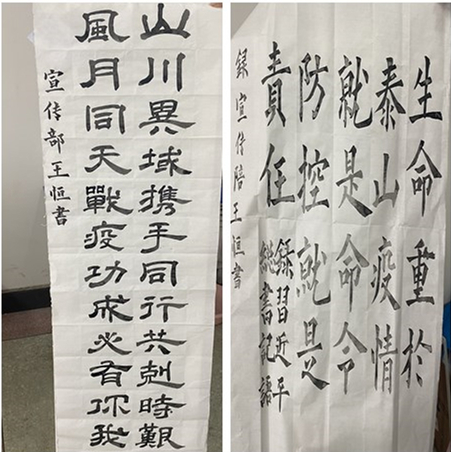 山川異域携手同行共剋時艱
風月同天戰疫功成必有你我
宣传部王恒書
生命重於
泰山疫情
就是命令
防控就是
責任
錄習近平
総書記語
錄宣传陪王恒書